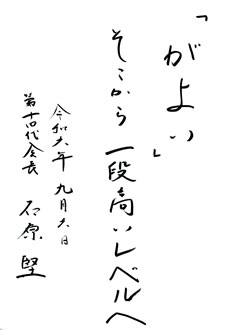 「がよい」
そこから一段高いレベルへ
令和六年九月六日
第十四代会長 石原 堅